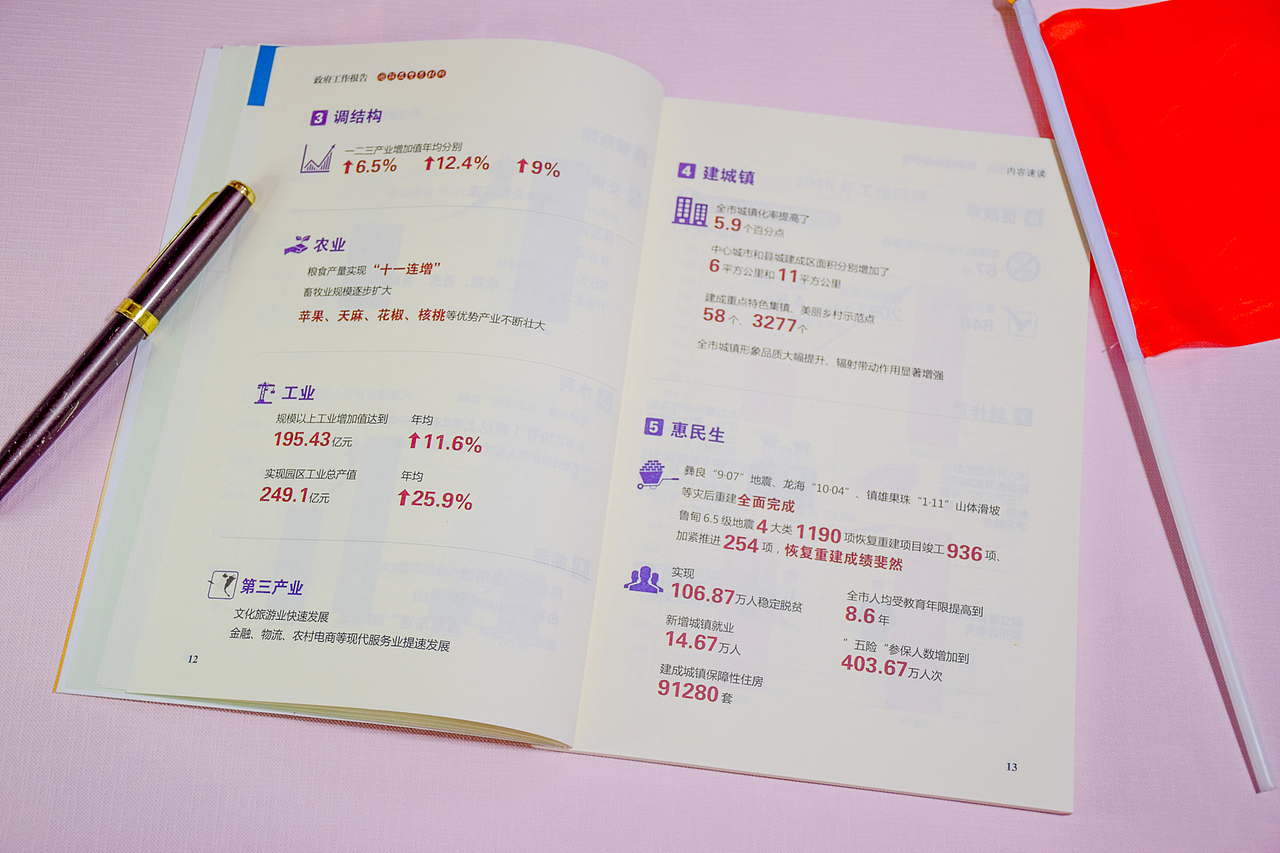 政府工作报告
3 调结构
一二三产业增加值年均分别
↑6.5% ↑12.4% ↑9%
农业
粮食产量实现“十一连增”
畜牧业规模逐步扩大
苹果、天麻、花椒、核桃等优势产业不断壮大
工业
规模以上工业增加值达到 年均
195.43亿元 ↑11.6%
实现园区工业总产值 年均
249.1亿元 ↑25.9%
第三产业
文化旅游业快速发展
金融、物流、农村电商等现代服务业提速发展
12
内容速读
4 建城镇
全市城镇化率提高了
5.9个百分点
中心城市和县城建成区面积分别增加了
6平方公里和11平方公里
建成重点特色集镇、美丽乡村示范点
58个、3277个
全市城镇形象品质大幅提升、辐射带动作用显著增强
5 惠民生
彝良“9·07”地震、龙海“10·04”、镇雄果珠“1·11”山体滑坡
等灾后重建全面完成
鲁甸6.5级地震4大类1190项恢复重建项目竣工936项、
加紧推进254项，恢复重建成绩斐然
实现
106.87万人稳定脱贫
新增城镇就业
14.67万人
建成城镇保障性住房
91280套
全市人均受教育年限提高到
8.6年
”五险“参保人数增加到
403.67万人次
13